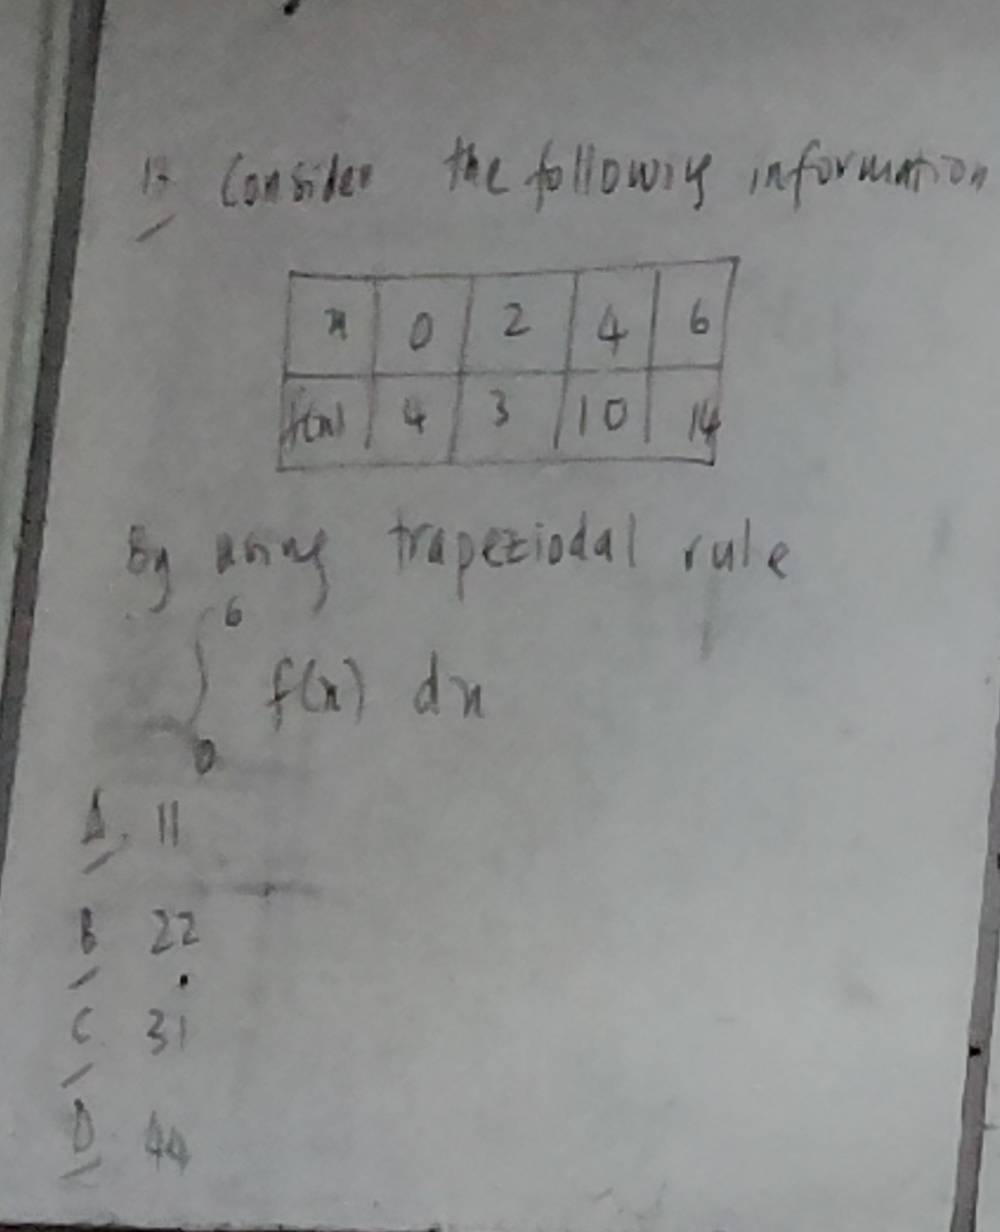 1. Consider the following information
x 0 2 4 6
f(x) 4 3 10 14
By using trapeziodal rule
∫
6
0
f(x) dx
A. 11
B 22
C. 31
D. 44